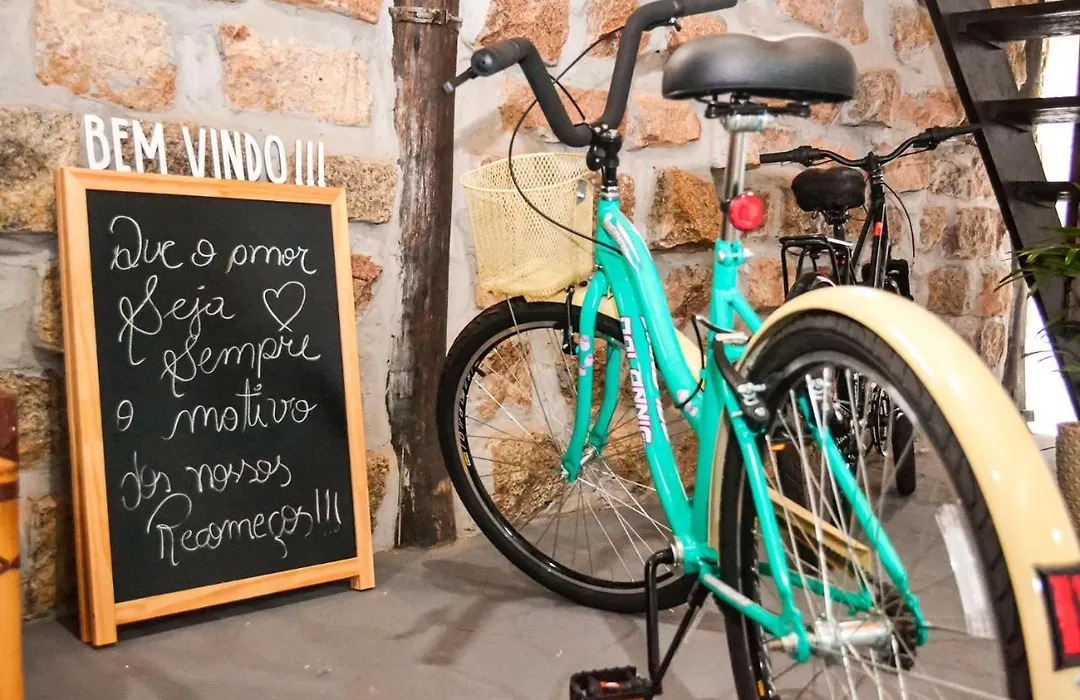 BEM VINDO!!!
Que o amor
Seja
Sempre
o motivo
dos nossos
Recomeços!!!